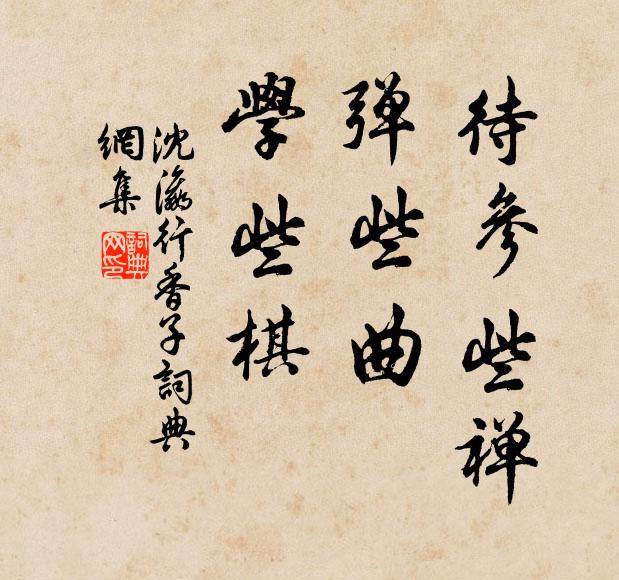 待参些禅
弹些曲
學些棋
沈瀛行香子詞典
網集
詞典
网印